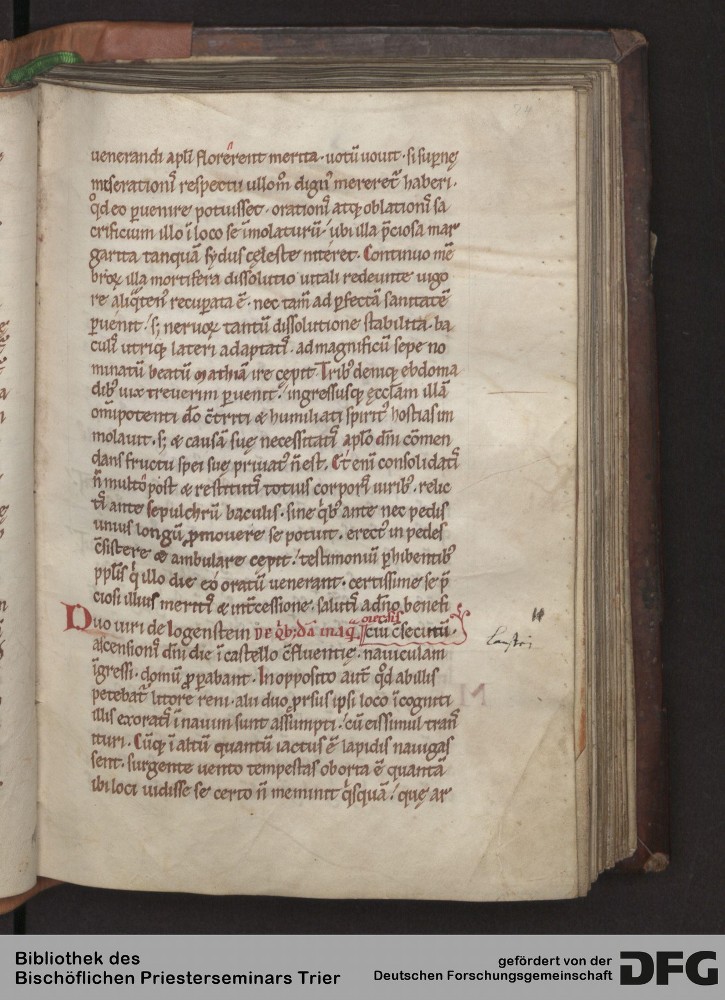 uenerandi apłi florerent merita · uotū uouit · si supernę
miserationis respectu ullom̄ dignus mereret᷑ haberi ·
qd eo ꝑuenire potuisset · orationis atq; oblationis sa
crificium illo ī loco se īmolaturū · ubi illa p̄ciosa mar
garita tanquā sydus cęleste niteret · Continuo mē
broꝝ illa mortifera dissolutio uitali redeunte uigo
re aliqͣten recuperata ē · nec tam̄ ad ꝑfectā sanitatē
ꝑuenit · s; neruoꝝ tantū dissolutione stabilita · ba
culis utriq; lateri adaptatis · ad magnificū sepe no
minatū beatū Mathiā ire cepit · Tribꝰ deniq; ebdoma
dibꝰ uix treuerim ꝑuenit · ingressusq; ęcclam illā
om̄ipotenti do c̄triti & humiliati spiritꝰ hostias im
molauit · s; & causā suę necessitatis apło dn̄i cōmen
dans fructu spei suę priuatꝰ n̄ est · Et eni consolidatis
n̄ multo post & restitutis totius corporis uiribꝰ · relic
tis ante sepulchrū baculis · sine qͥbꝰ ante nec pedis
unius longū ꝓmouere se potuit · erectꝰ in pedes
c̄sistere & ambulare cepit · testimoniū ꝑhibentibꝰ
pplis qͥ illo die eo oratū uenerant · certissime se p̄
ciosi illius meritis & int̄cessione · salutis a dn̄o benefi
Duo uiri de logenstein DE qͥb;dā in aqͣ ciū c̄secutū ·
ascensionis dn̄i die ī castello c̄fluentię · nauiculam
īgressi · domū ꝓꝑabant · In opposito aut̄ qd ab illis
petebat᷑ littore reni · alii duo ꝓrsus ipsi loco īcogniti
illis exoratis ī nauim sunt assūmpti · cū eis simul trans
ituri · Cūq; ī altū quantū iactus ē lapidis nauigas
sent · surgente uento tempestas oborta ē quantā
ibi loci uidisse se certo n̄ meminit qͥsquā · quę ar
Bibliothek des
Bischöflichen Priesterseminars Trier
gefördert von der
Deutschen Forschungsgemeinschaft
DFG